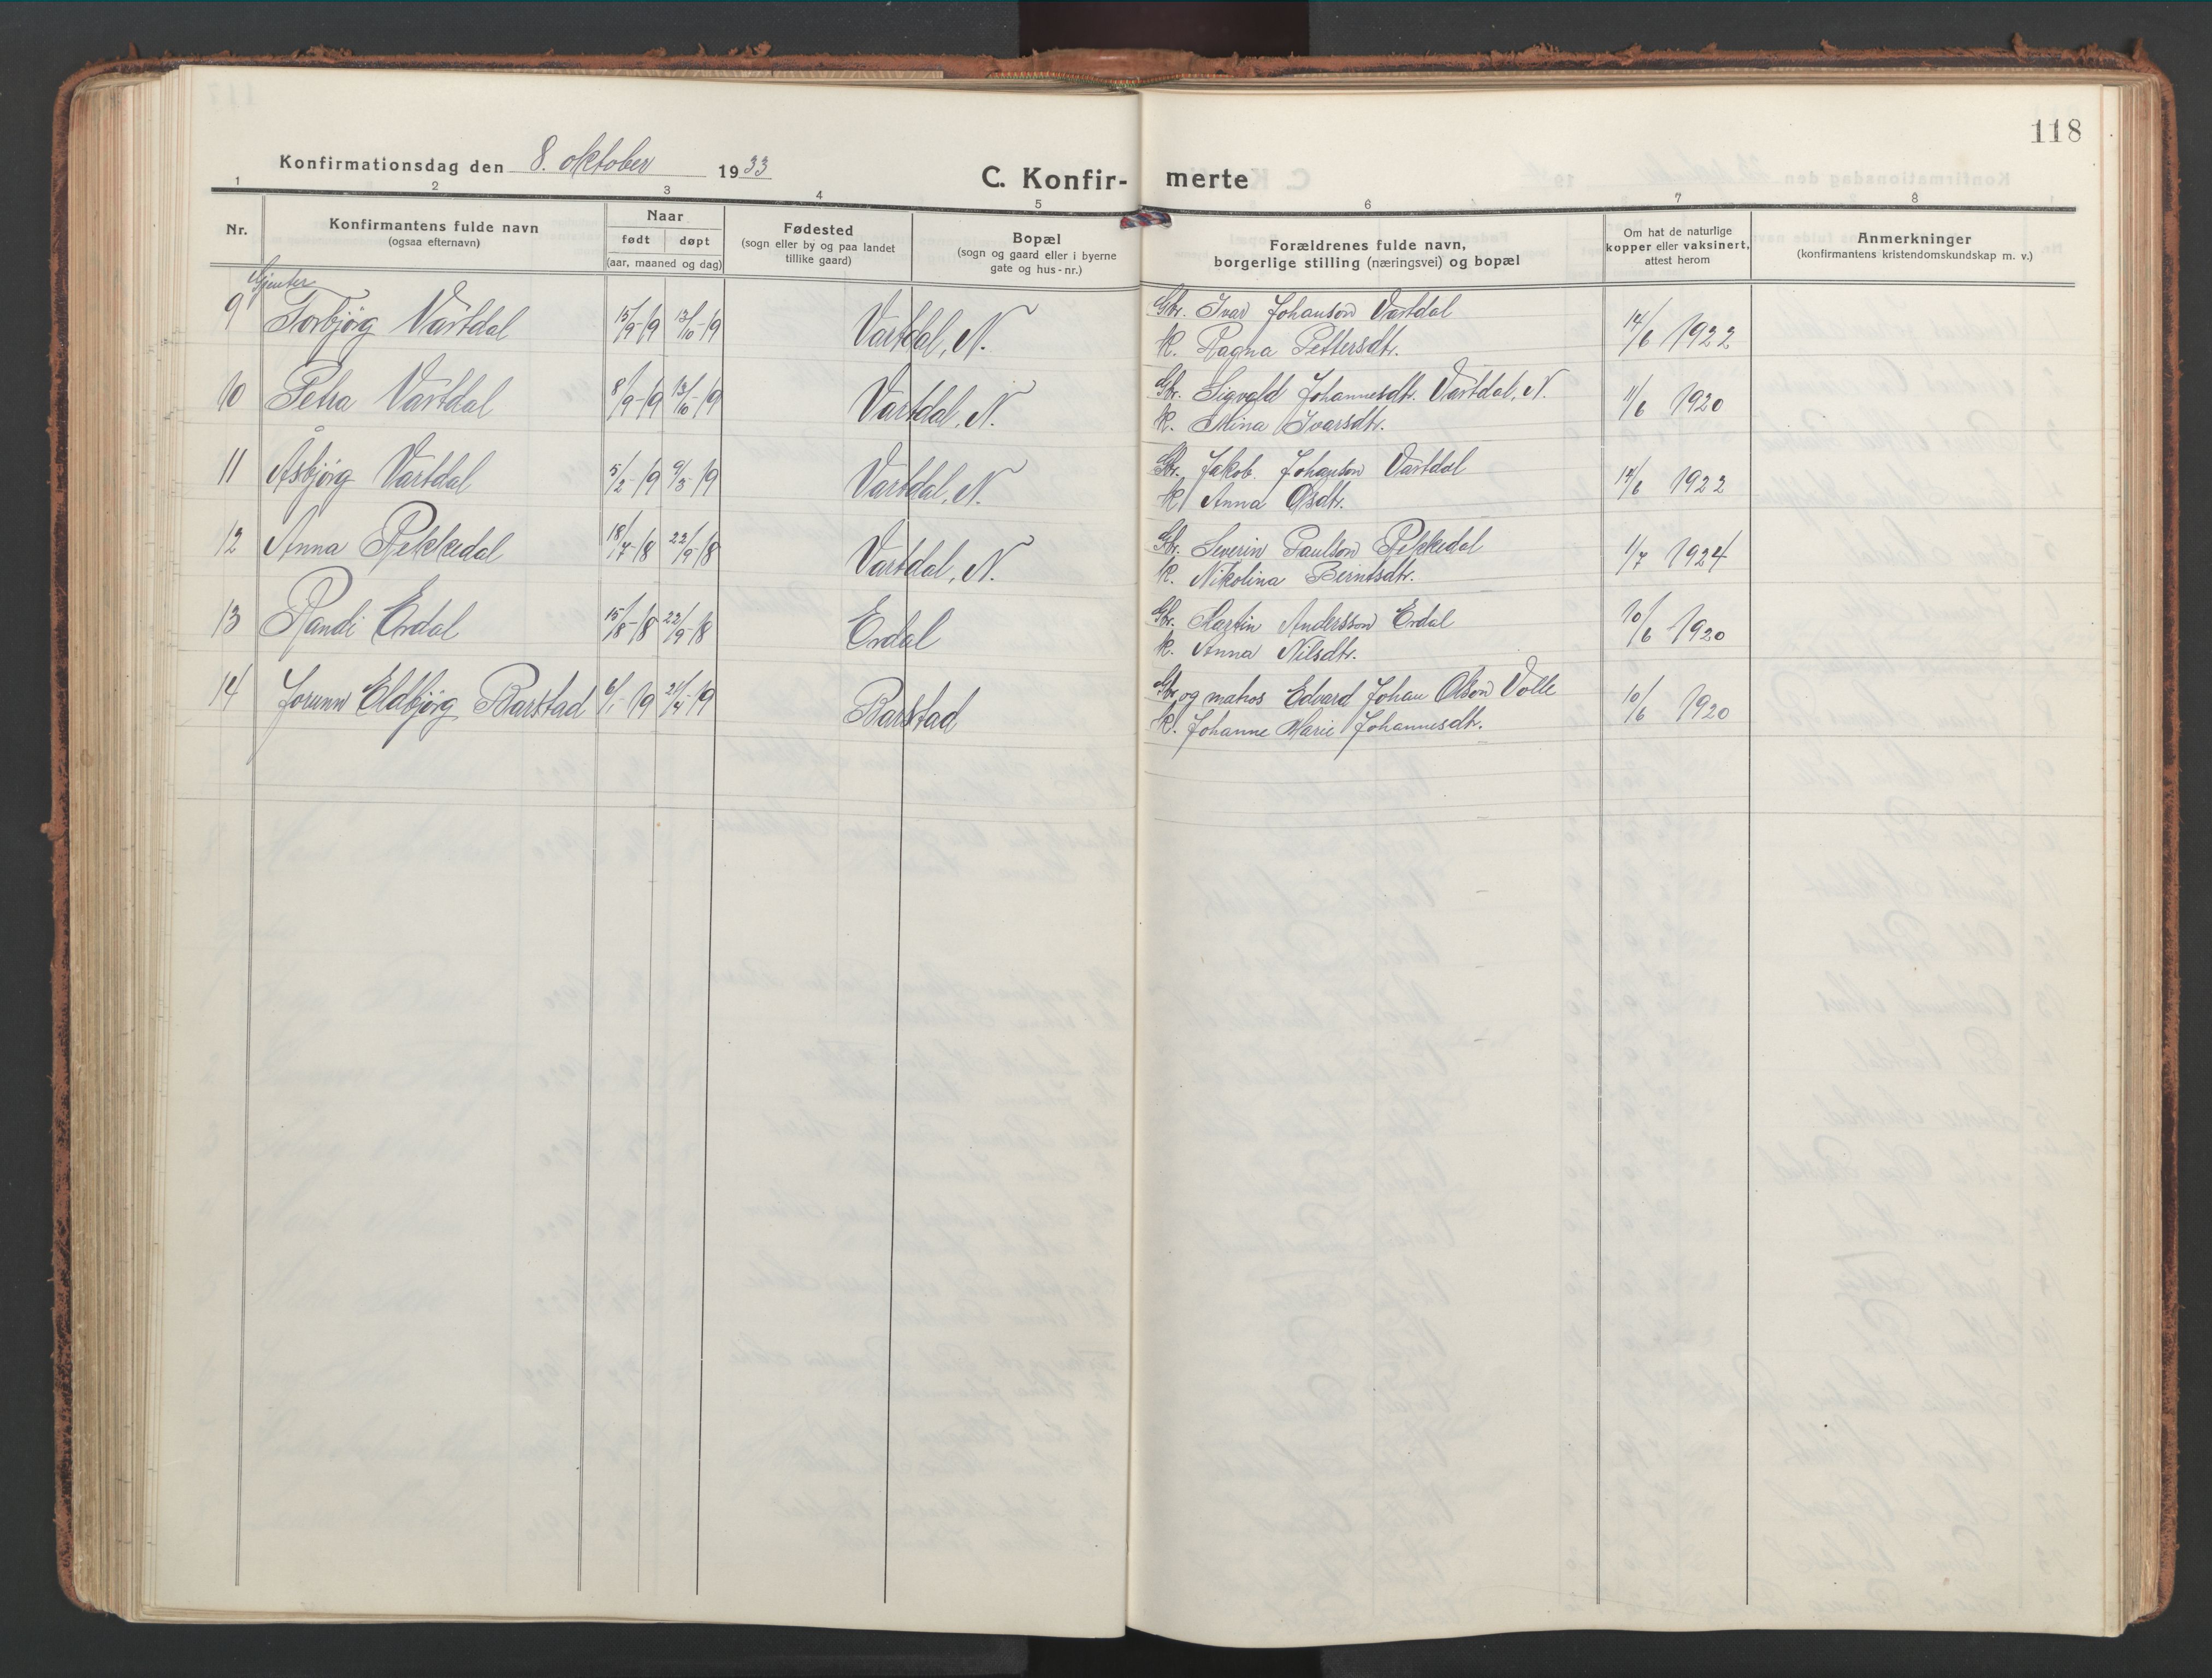 118
Konfirmationsdag den 8. oktober 1933
C. Konfir- merte
1 2 3 4 5 6 7 8
Nr.
Konfirmantens fulde navn
(ogsaa efternavn)
Naar
født døpt
(aar, maaned og dag)
Fødested
(sogn eller by og paa landet
tillike gaard)
Bopæl
(sogn og gaard eller i byerne
gate og hus-nr.)
Forældrenes fulde navn,
borgerlige stilling (næringsvei) og bopæl
Om hat de naturlige
kopper eller vaksinert,
attest herom
Anmerkninger
(konfirmantens kristendomskundskap m. v.)
Gjenter
9 Torbjørg Vartdal 15/9-19 13/10-19 Vartdal, N. Gbr. Ivar Johanson Vartdal 14/6 1922
K. Ragna Pettersdtr.
10 Petra Vartdal 8/9-19 13/10-19 Vartdal, N. Gbr. Sigvald Johannesdtr. Vartdal, N. 11/6 1920
K. Mina Ivarsdtr.
11 Åsbjørg Vartdal 5/2-19 9/3-19 Vartdal, N. Gbr. Jakob Johanson Vartdal 14/6 1922
K. Anna Osdtr.
12 Anna Rekkedal 18/7-18 22/9-18 Vartdal, N. Gbr. Severin Paulson Rekkedal 1/7 1924
K. Nikolina Berntsdtr.
13 Randi Erdal 15/8-18 22/9-18 Erdal Gbr. Martin Andersson Erdal 10/6 1920
K. Anna Nilsdtr.
14 Jorunn Eldbjørg Barstad 6/1-19 21/4-19 Barstad Gbr. og matros Edvard Johan Olson Volle 10/6 1920
K. Johanne Marie Johannesdtr.